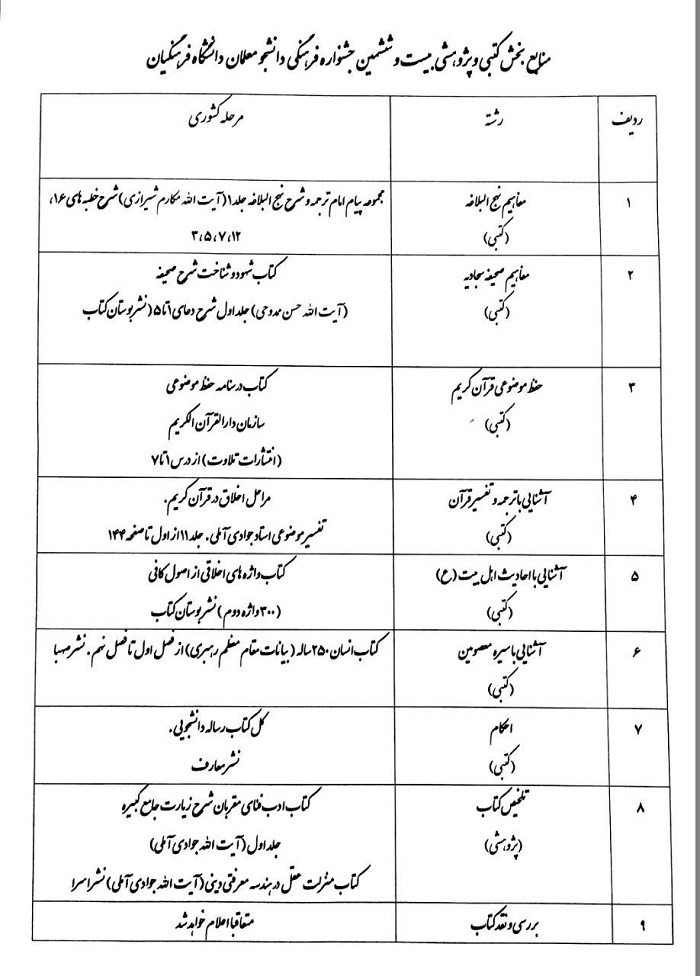 منابع بخش کتبی و پژوهشی بیست و ششمین جشنواره فرهنگی دانشجو معلمان دانشگاه فرهنگیان
ردیف رشته مرحله کشوری
۱ مفاهیم نهج البلاغه مجموعه پیام امام ترجمه و شرح نهج البلاغه جلد ۱ (آیت الله مکارم شیرازی) شرح خطبه های ۱۶،
(کتبی) ۳،۵،۷،۱۲
۲ مفاهیم صحیفه سجادیه کتاب شهود و شناخت شرح صحیفه
(کتبی) (آیت الله حسن ممدوحی) جلد اول شرح دعای ۱ تا ۵ (نشر بوستان کتاب
۳ حفظ موضوعی قرآن کریم کتاب درسنامه حفظ موضوعی
(کتبی) سازمان دارالقرآن الکریم
(انتشارات تلاوت) از درس ۱ تا ۷
۴ آشنایی با ترجمه و تفسیر قرآن مراحل اخلاق در قرآن کریم.
(کتبی) تفسیر موضوعی استاد جوادی آملی. جلد ۱۱ از اول تا صفحه ۱۴۴
۵ آشنایی با احادیث اهل بیت (ع) کتاب واژه های اخلاقی از اصول کافی
(کتبی) (۳۰۰ واژه دوم) نشر بوستان کتاب
۶ آشنایی با سیره معصومین کتاب انسان ۲۵۰ ساله (بیانات مقام معظم رهبری) از فصل اول تا فصل نهم. نشر صهبا
(کتبی)
۷ احکام کل کتاب رساله دانشجویی.
(کتبی) نشر معارف
۸ تلخیص کتاب کتاب ادب فنای مقربان شرح زیارت جامع کبیره
(پژوهشی) جلد اول (آیت الله جوادی آملی)
کتاب منزلت عقل در هندسه معرفتی دینی (آیت الله جوادی آملی) نشر اسرا
۹ بررسی و نقد کتاب متعاقبا اعلام خواهد شد